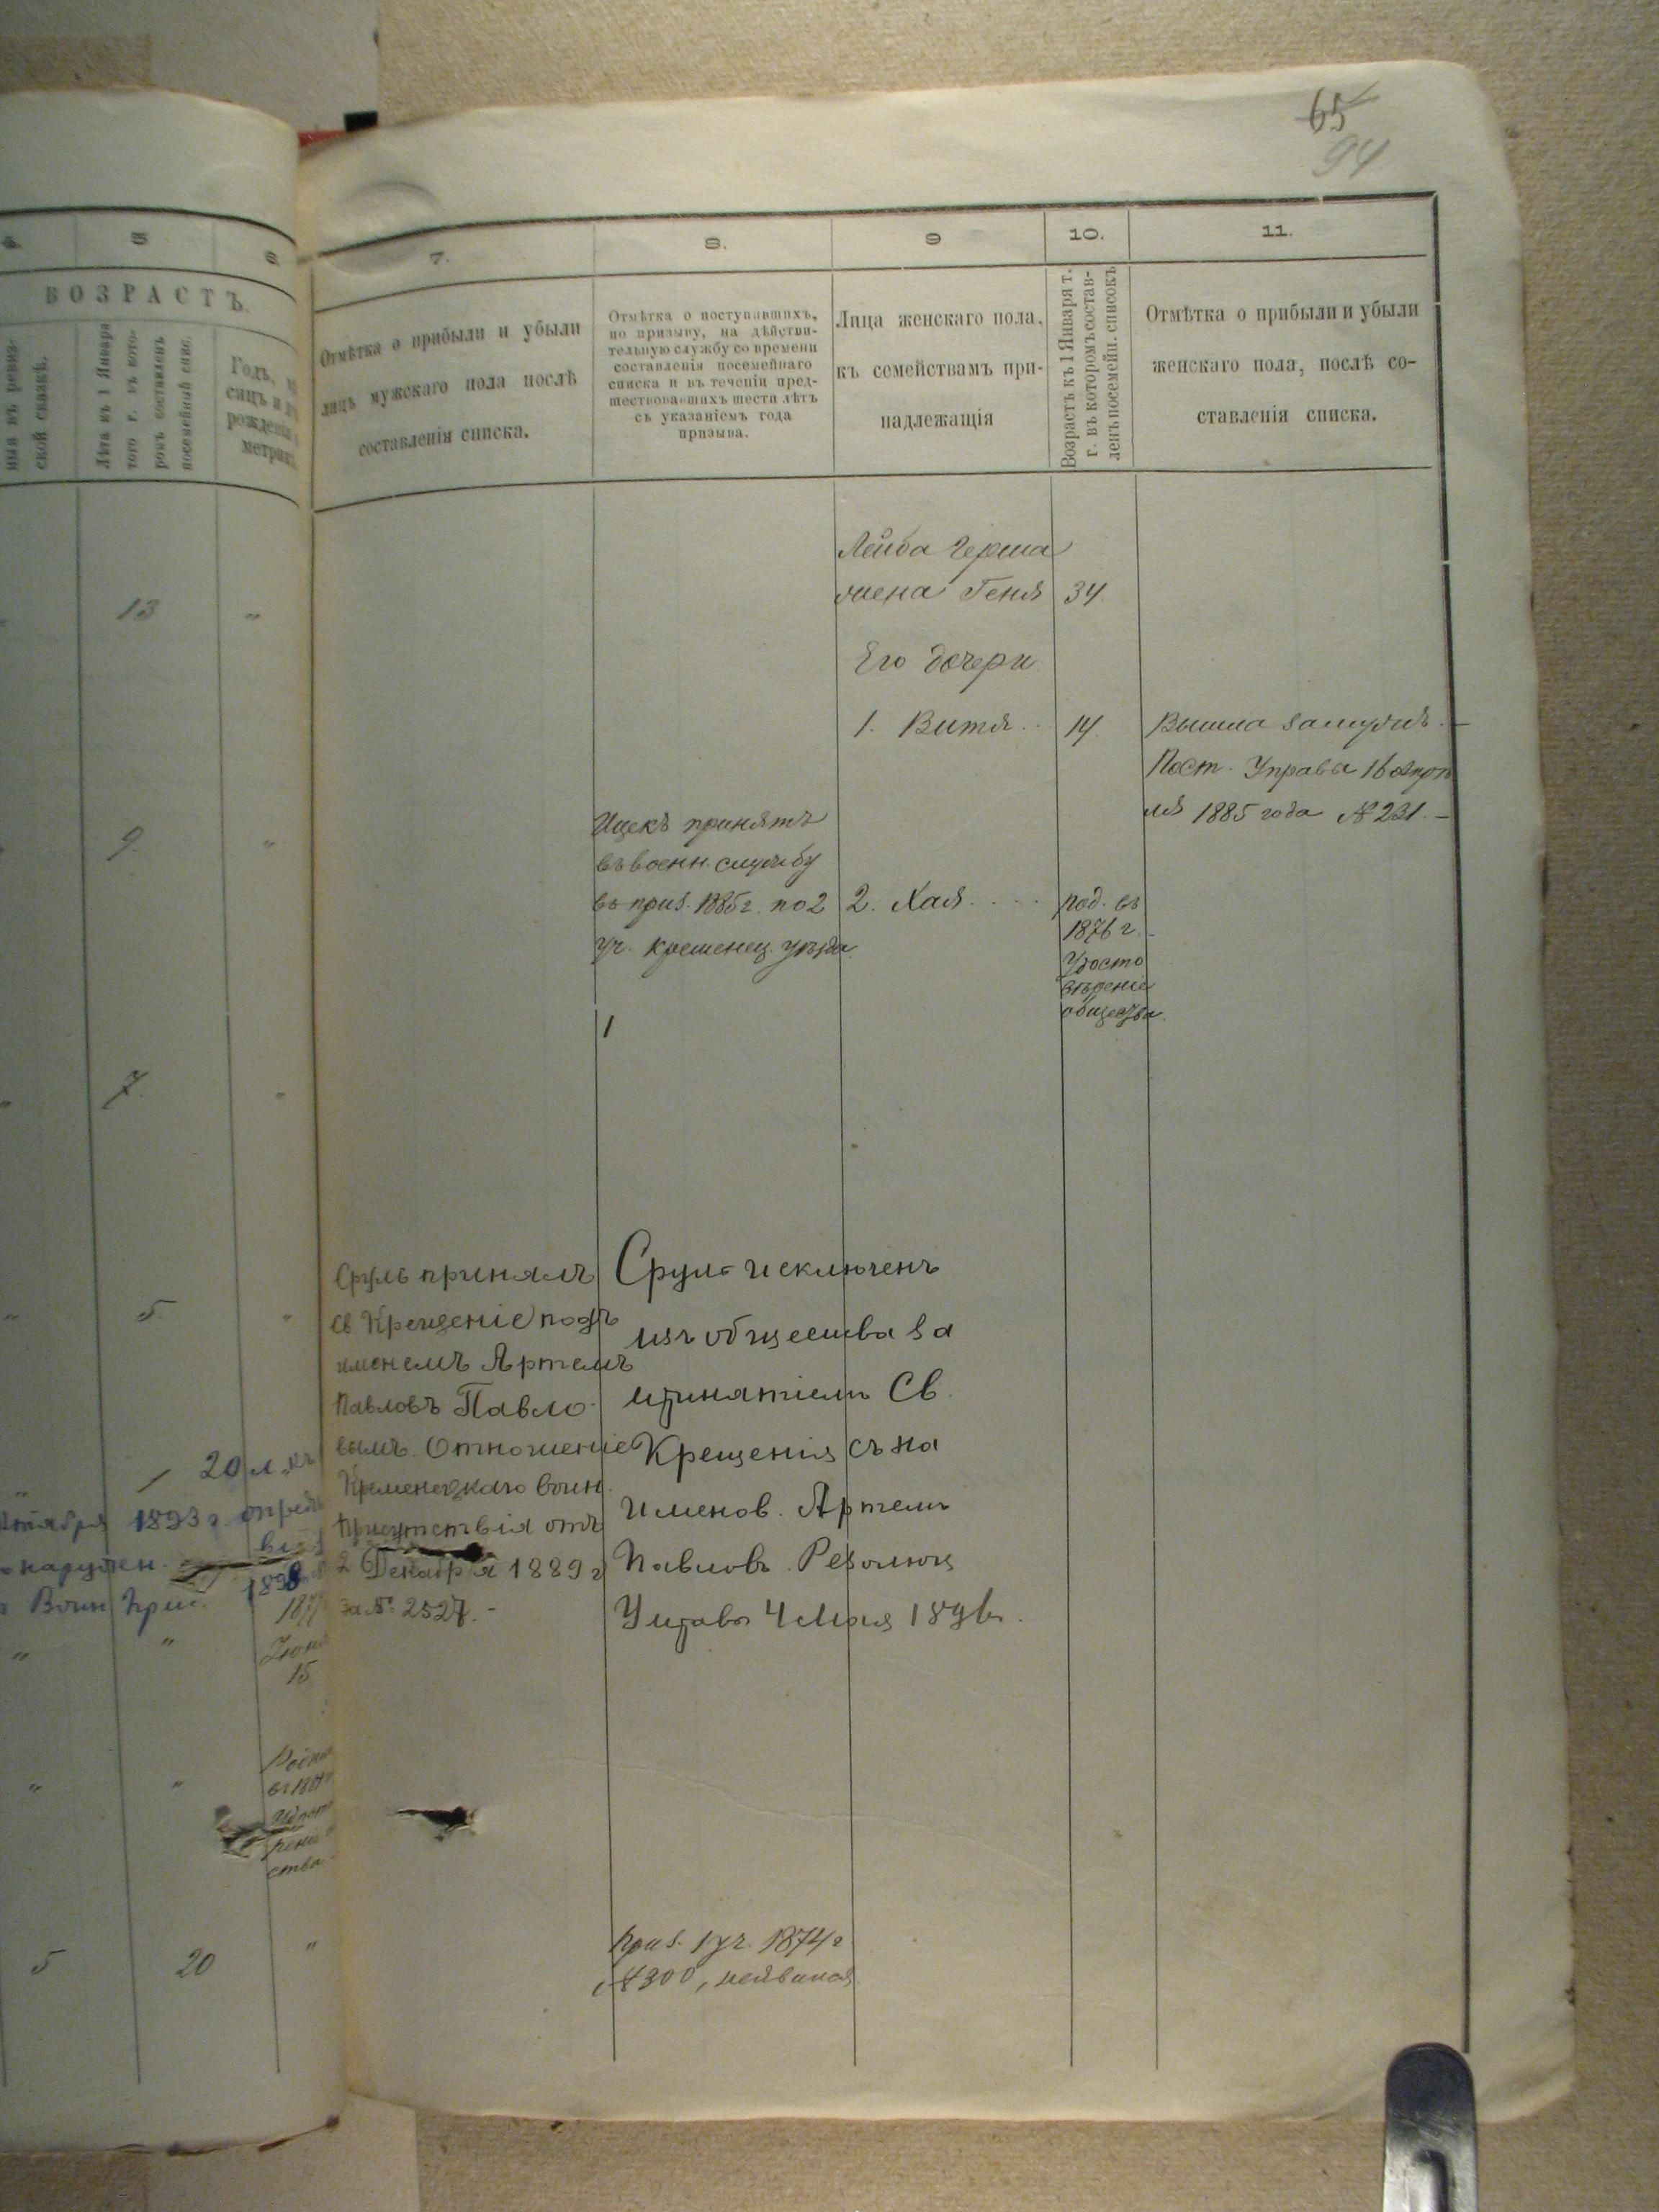 65
94
5
7.
8.
9
10.
11.
ВОЗРАСТЪ.
ской сказкѣ.
Лѣта къ 1 Января
того г. въ кото-
ромъ составленъ
посемейный спис.
Годъ,
рожденія
Отмѣтка о прибыли и убыли
лицъ мужскаго пола послѣ
составленія списка.
Отмѣтка о поступившихъ,
по призыву, на дѣйстви-
тельную службу со времени
составленія посемейнаго
списка и въ теченіи пред-
шествовавшихъ шести лѣтъ
съ указаніемъ года
призыва.
Лица женскаго пола,
къ семействамъ при-
надлежащія
Возрастъ къ 1 Января т.
г. въ которомъ состав-
ленъ посемейн. списокъ
Отмѣтка о прибыли и убыли
женскаго пола, послѣ со-
ставленія списка.
13
9.
7.
5.
20 л.
1893 г
наружен.
Воин. Прис.
Іюня
15
5 20
Лейба Герша
жена Геня 34
Его дочери
1. Витя 14.
Вышла замужъ. —
Пост. Управы 16 Апрѣ
ля 1885 года № 231. —
Ицекъ принятъ
въ воен. службу
въ приз. 1885 г. по 2
уч. Кременец. уѣзда
1
2. Хая
род. въ
1876 г.
Удосто
вѣреніе
общества.
Сруль принялъ
Св. Крещеніе подъ
именемъ Артемъ
Павловъ Павло-
вымъ. Отношеніе
Кременецкаго воин.
Присутствія отъ
2 Декабря 1889 г
за № 2527. —
Сруль исключенъ
изъ общества за
принятіемъ Св.
Крещенія съ на
именов. Артемъ
Павловъ. Резолюц
Управы 4 Мая 189
Приз. 1 уч. 1874 г
№ 300, неявился